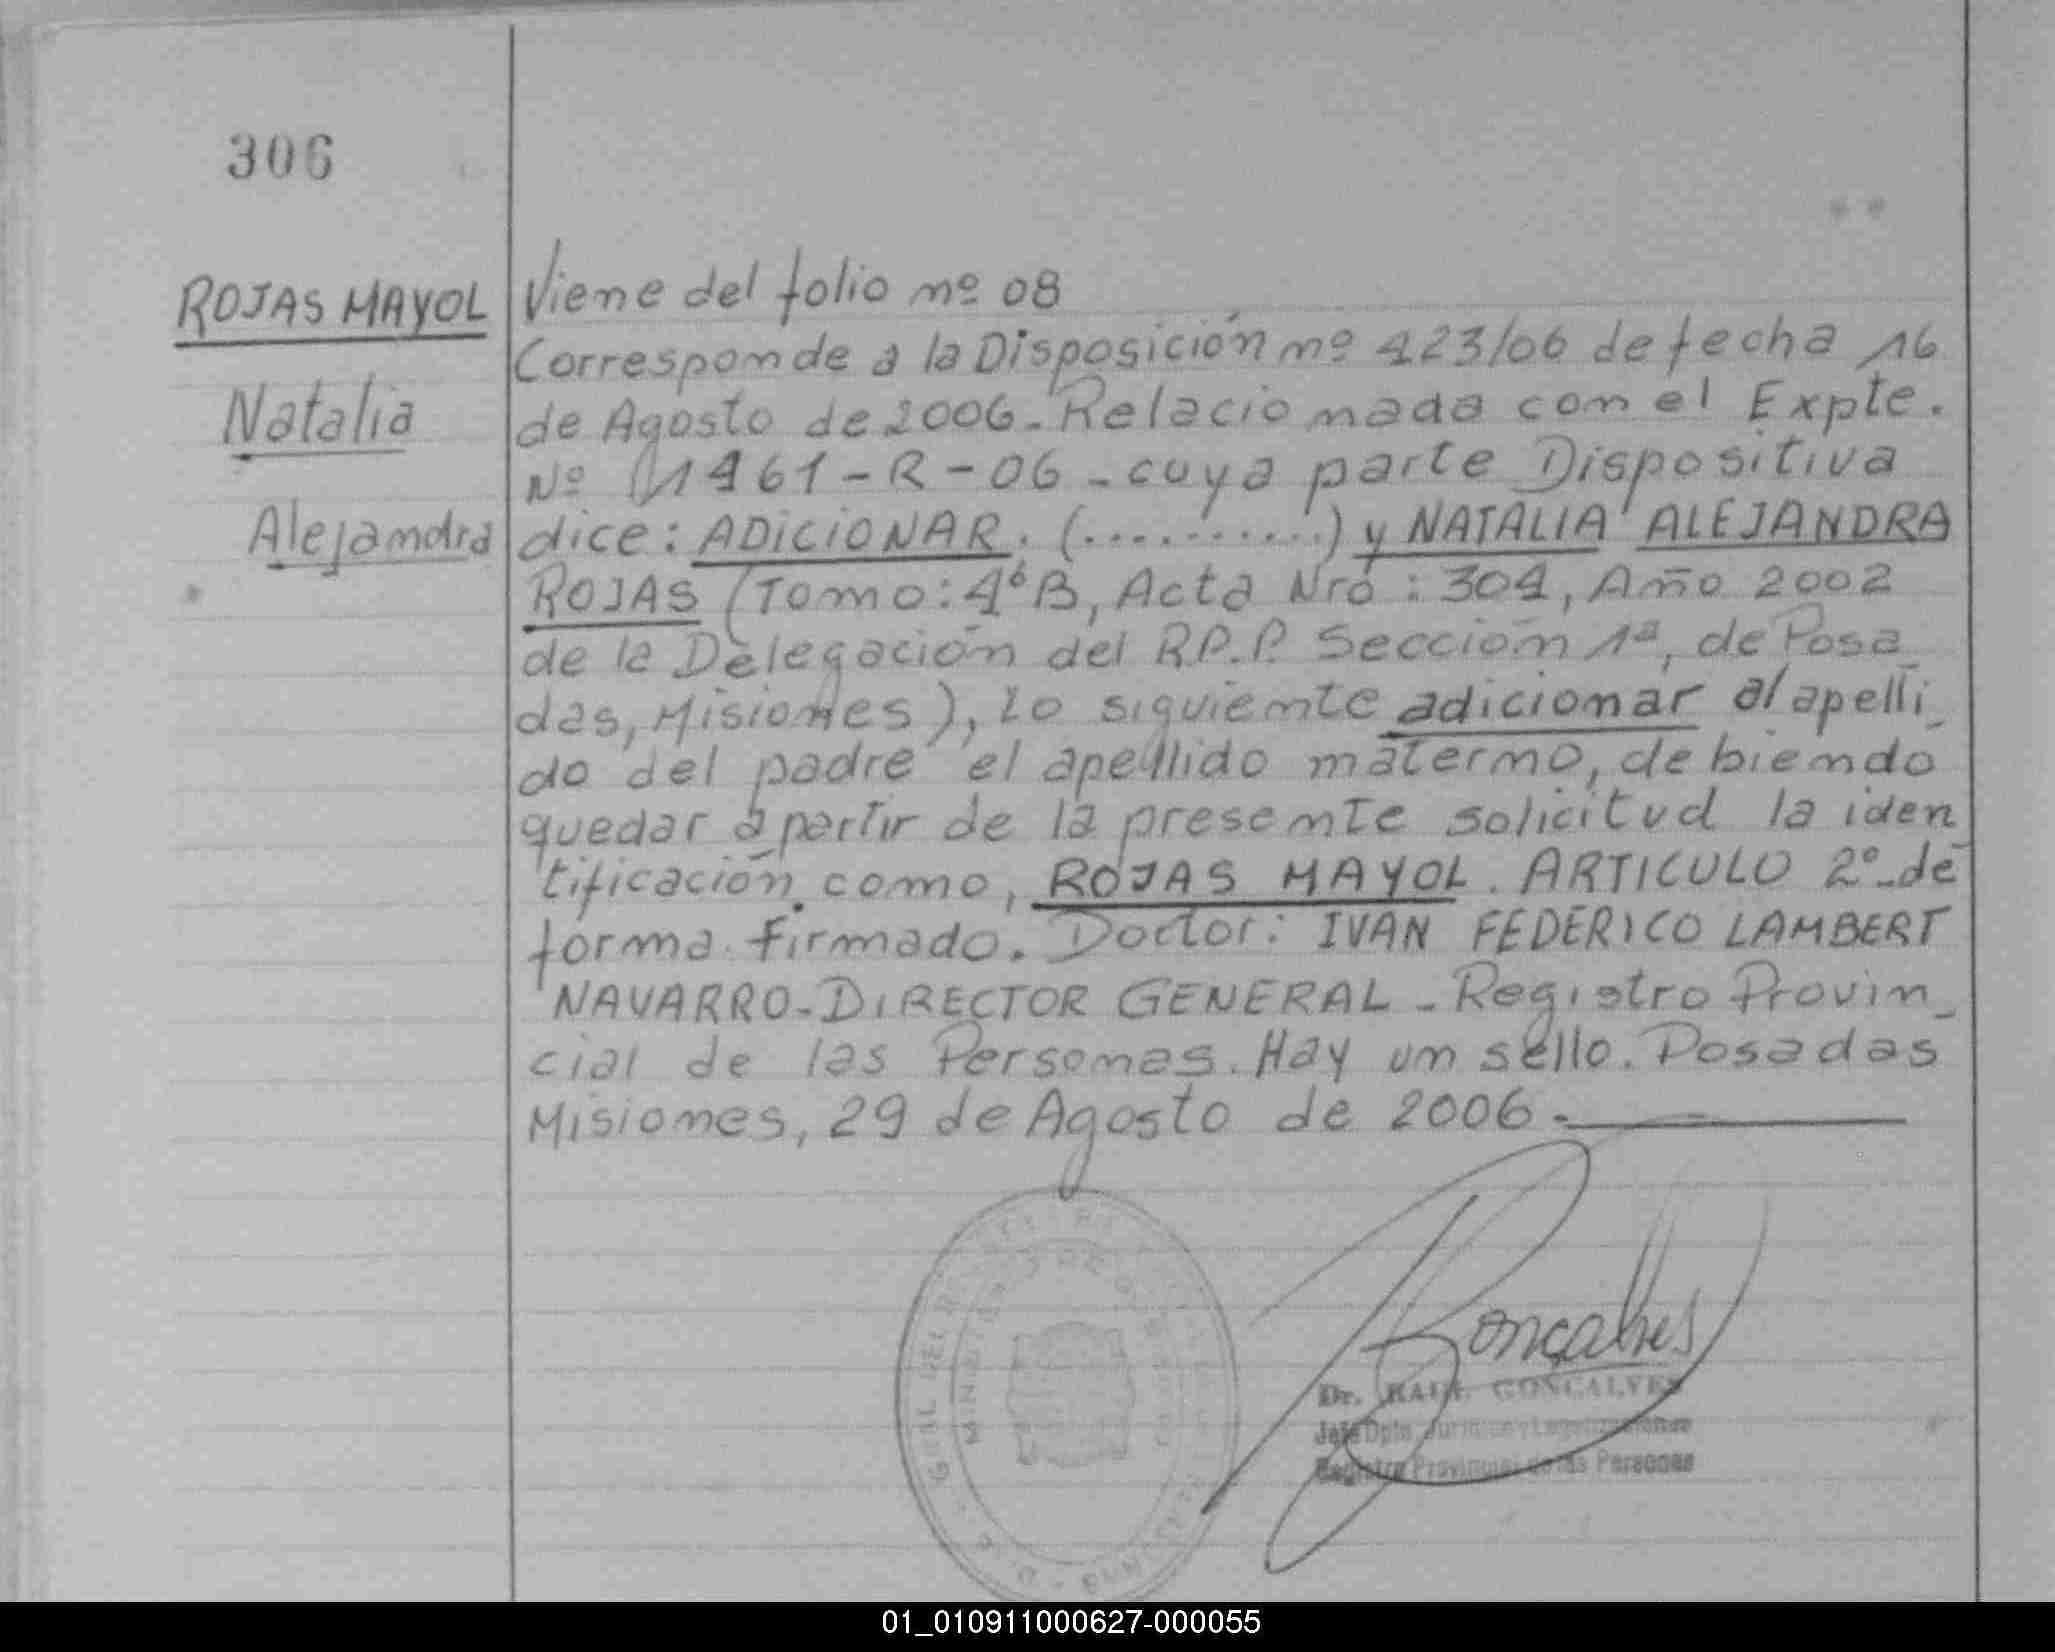 306
ROJAS MAYOL
Natalia
Alejandra
Viene del folio nº 08
Corresponde a la Disposición nº 423/06 de fecha 16
de Agosto de 2006-Relacionada con el Expte.
Nº 1461-R-06-cuya parte Dispositiva
dice: ADICIONAR. (..........) y NATALIA ALEJANDRA
ROJAS (Tomo: 4ºB, Acta Nro: 304, Año 2002
de la Delegación del R.P.P. Sección 1ª, de Posa_
das, Misiones), Lo siguiente adicionar al apelli_
do del padre el apellido materno, debiendo
quedar a partir de la presente solicitud la iden_
tificación como, ROJAS MAYOL. ARTICULO 2º-de
forma. Firmado. Doctor: IVAN FEDERICO LAMBERT
NAVARRO-DIRECTOR GENERAL-Registro Provin_
cial de las Personas. Hay un sello. Posadas
Misiones, 29 de Agosto de 2006.
Gonçalves
Dr. RAUL GONCALVES
Jefe Dpto. Jurídico y Legalizaciones
Registro Provincial de las Personas
GRAL DEL
MISIONES
01_010911000627-000055